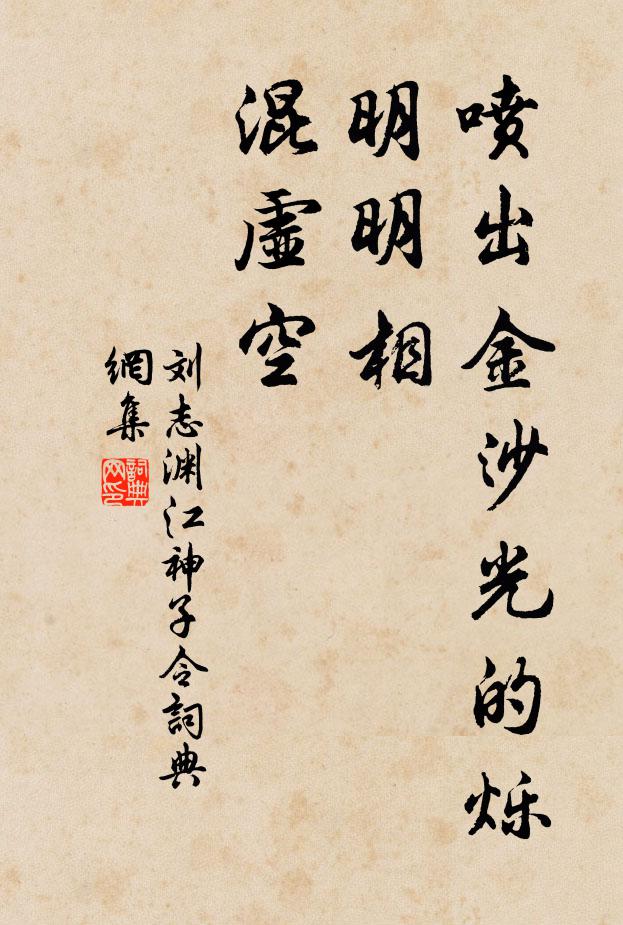 喷出金沙光的烁
明明相
混虚空
刘志渊江神子令詞典
網集
詞典网印